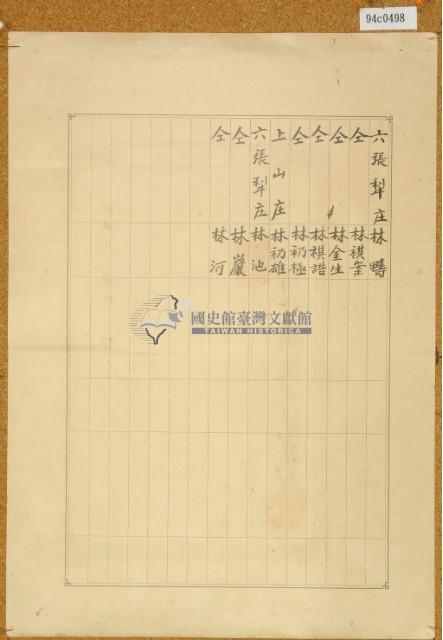 94c0498
六張犁庄 林疇
仝 林祺業
仝 林金生
仝 林祺諧
仝 林礽極
上山庄 林礽雄
六張犁庄 林池
仝 林巖
仝 林河
國史館臺灣文獻館
TAIWAN HISTORICA